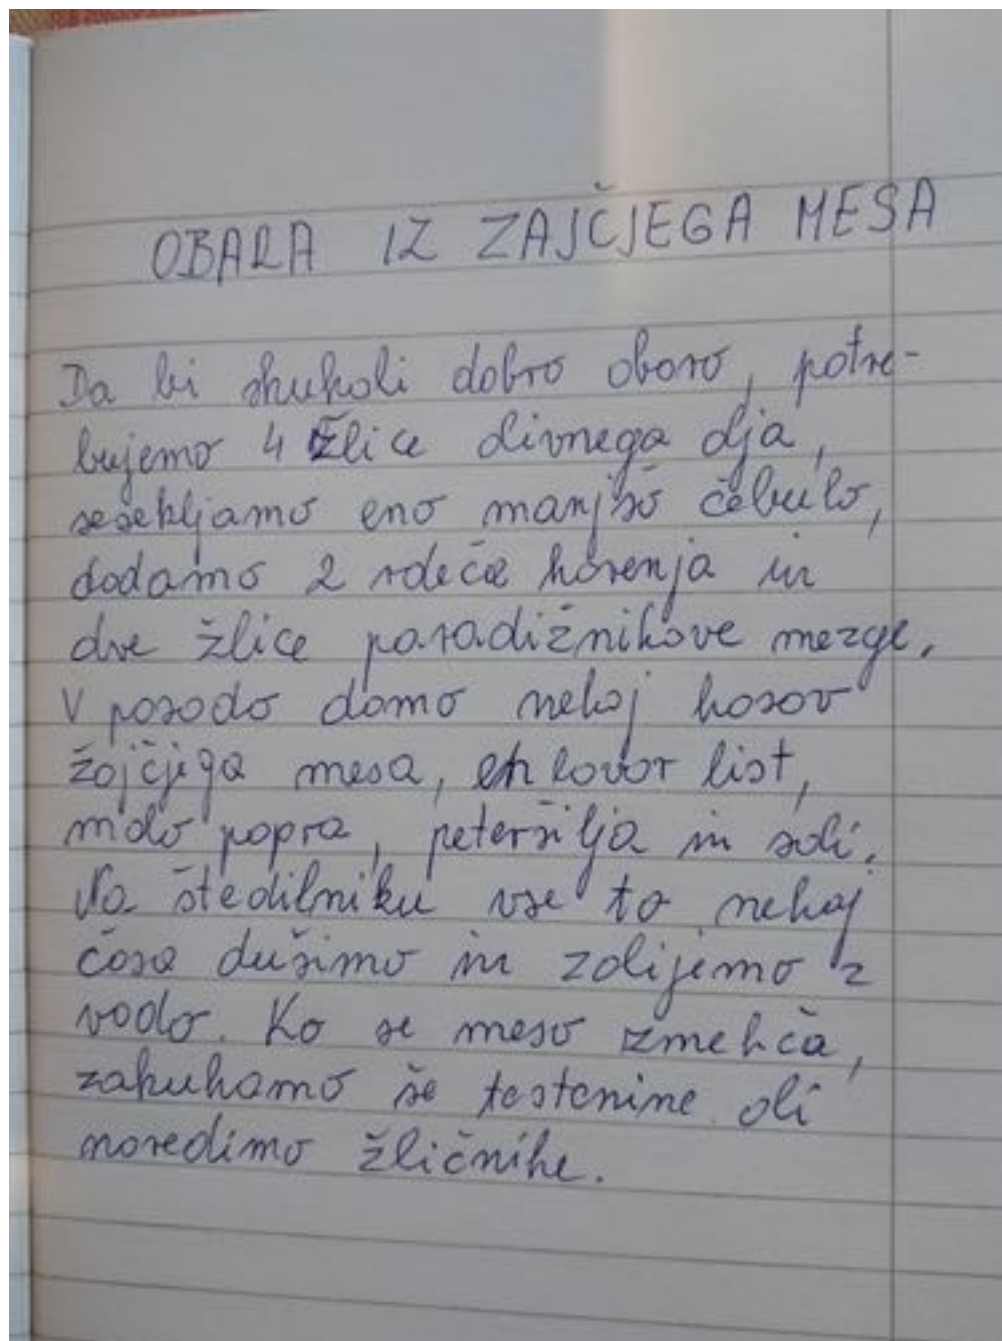 OBARA IZ ZAJČJEGA MESA
Da bi skuhali dobro obaro, potre-
bujemo 4 žlice olivnega olja,
sesekljamo eno manjšo čebulo,
dodamo 2 rdeča korenja in
dve žlice paradižnikove mezge.
V posodo damo nekaj kosov
zajčjega mesa, en lovor list,
malo popra, peteršilja in soli.
Na štedilniku vse to nekaj
časa dušimo in zalijemo z
vodo. Ko se meso zmehča,
zakuhamo še testenine ali
naredimo žličnike.